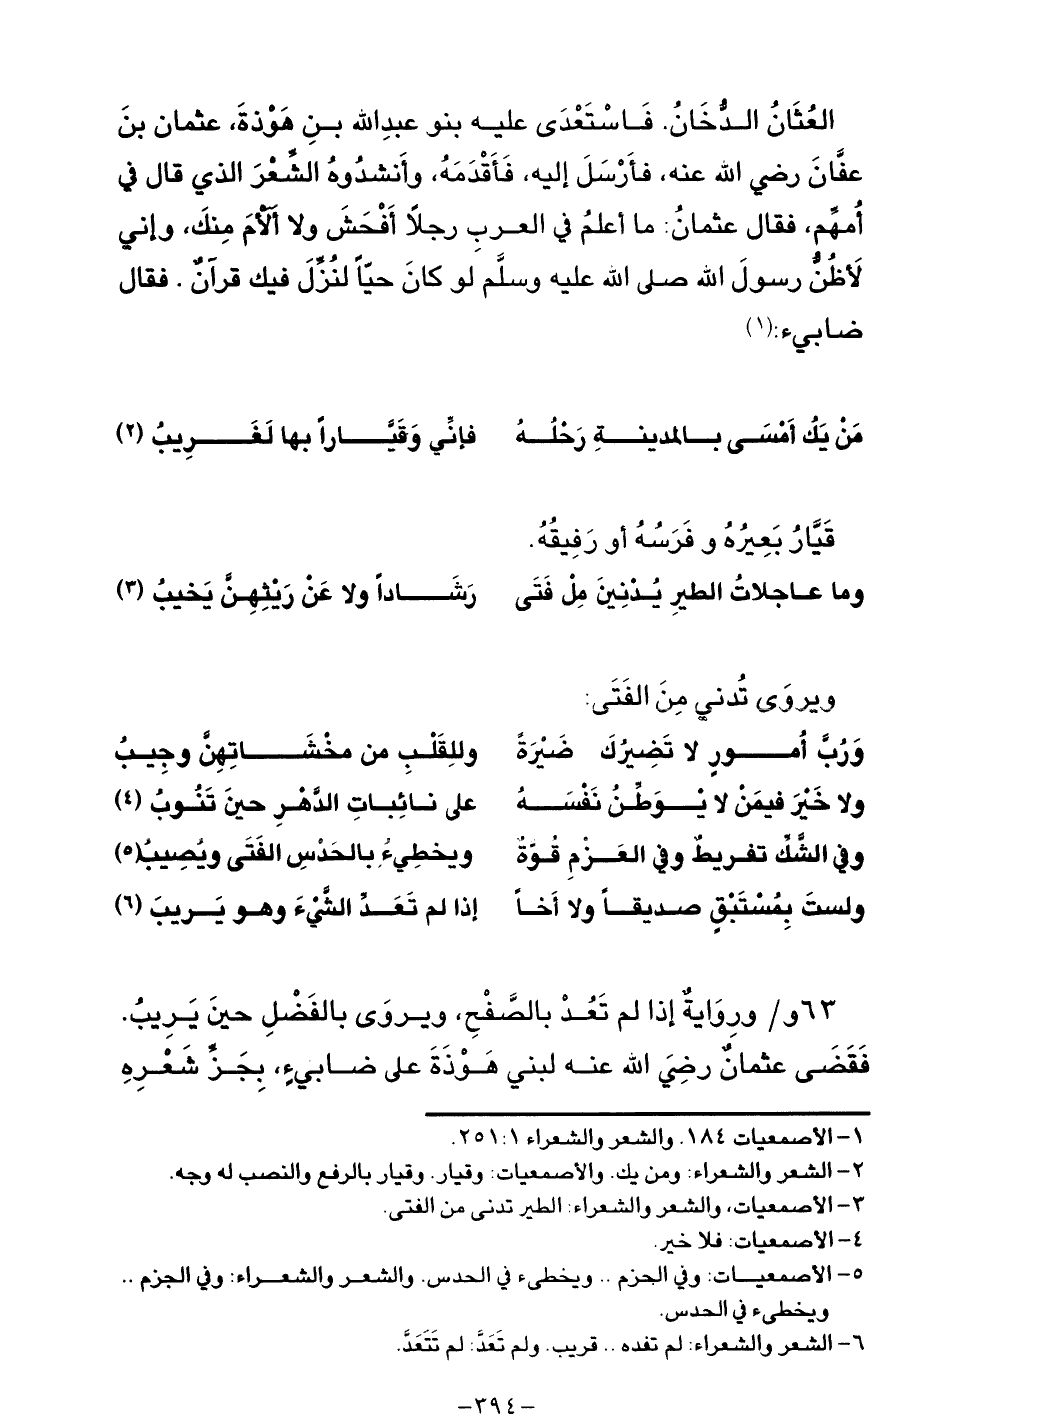 العُثَانُ الدُّخَانُ. فَاسْتَعْدَى عليه بنو عبدِالله بنِ هَوْذةَ، عثمان بنَ
عفَّانَ رضي الله عنه، فأرْسَلَ إليه، فَأَقْدَمَهُ، وأَنشدُوهُ الشِّعْرَ الذي قال في
أُمهِّم، فقال عثمانُ: ما أعلمُ في العربِ رجلاً أَفْحَشَ ولا أَلْأَمَ مِنكَ، وإني
لَأظُنُّ رسولَ الله صلى الله عليه وسلَّم لو كانَ حيّاً لنُزِّلَ فيك قرآنٌ . فقال
ضابيء:(١)
مَنْ يَكُ أمْسَى بالمدينةِ رَحْلُهُ فإنِّي وَقَيَّاراً بها لَغَرِيبُ (٢)
قَيَّارُ بَعِيرُهُ و فَرَسُهُ أو رَفِيقُهُ.
وما عاجلاتُ الطيرِ يُدْنِينَ مِلْ فَتَى رَشَاداً ولا عَنْ رَيْثِهِنَّ يَخيبُ (٣)
ويروَى تُدني مِنَ الفَتَى:
وَرُبَّ أُمورٍ لا تَضِيرُكَ ضَيْرَةً وللِقَلْبِ من مخْشَاتِهِنَّ وجِيبُ
ولا خَيْرَ فيمَنْ لا يُوَطِّنُ نَفْسَهُ على نائِباتِ الدَّهْرِ حينَ تَنُوبُ (٤)
وفي الشَّكِّ تفريطٌ وفي العَزْمِ قُوّةٌ ويخطِيءُ بالحَدْسِ الفَتَى ويُصِيبُ(٥)
ولستَ بِمُسْتَبْقٍ صديقاً ولا أَخاً إذا لم تَعَدِّ الشَّيْءَ وهو يَريبَ (٦)
٦٣و/ ورِوَايةٌ إذا لم تَعُدْ بالصَّفْحِ، ويروَى بالفَضْلِ حينَ يَرِيبُ.
فَقَضَى عثمانٌ رضِيَ الله عنه لبني هَوْذَةَ على ضابيءٍ، بِجَزِّ شَعْرِهِ
١- الأصمعيات ١٨٤. والشعر والشعراء ٢٥١:١.
٢- الشعر والشعراء: ومن يك. والأصمعيات: وقيار. وقيار بالرفع والنصب له وجه.
٣- الأصمعيات، والشعر والشعراء: الطير تدنى من الفتى.
٤- الأصمعيات: فلا خير.
٥- الأصمعيات: وفي الحزم .. ويخطىء في الحدس. والشعر والشعراء: وفي الحزم ..
ويخطىء في الحدس.
٦- الشعر والشعراء: لم تفده .. قريب. ولم تَعَدَّ: لم تَتَعَدَّ.
-٣٩٤-